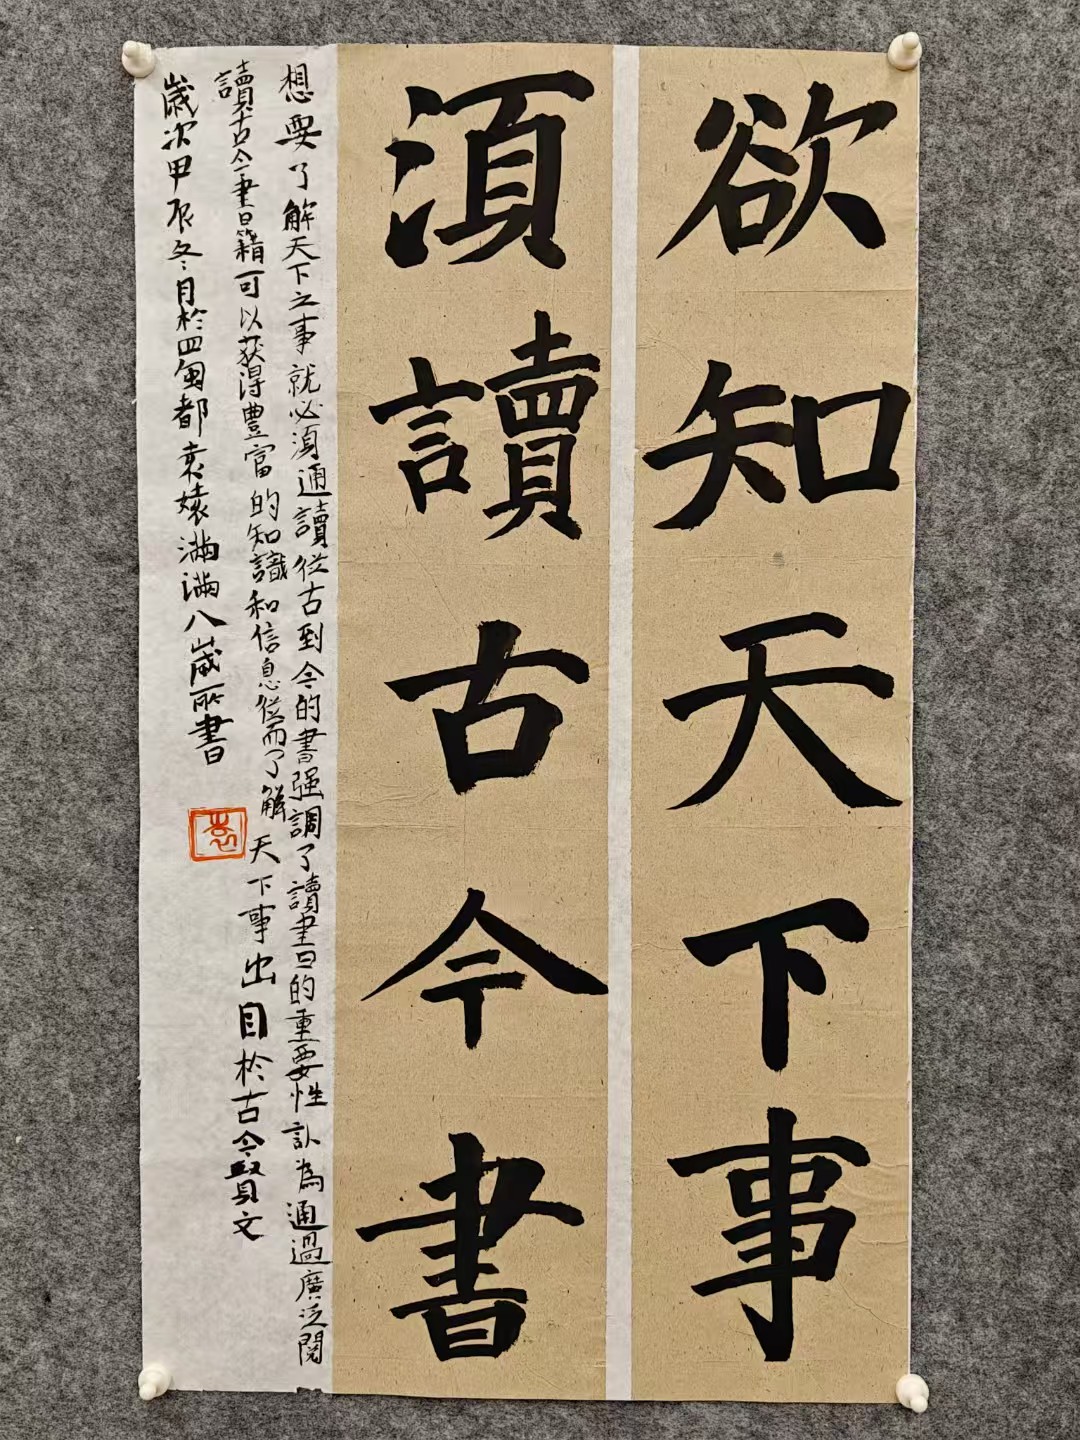 欲知天下事
須讀古今書
想要了解天下之事就必須通讀從古到今的書强調了讀書的重要性認為通過廣泛閱
讀古今書籍可以获得豐富的知識和信息從而了解天下事出自於古今賢文
歲次甲辰冬月於四蜀都袁媴滿滿八歲所書
袁